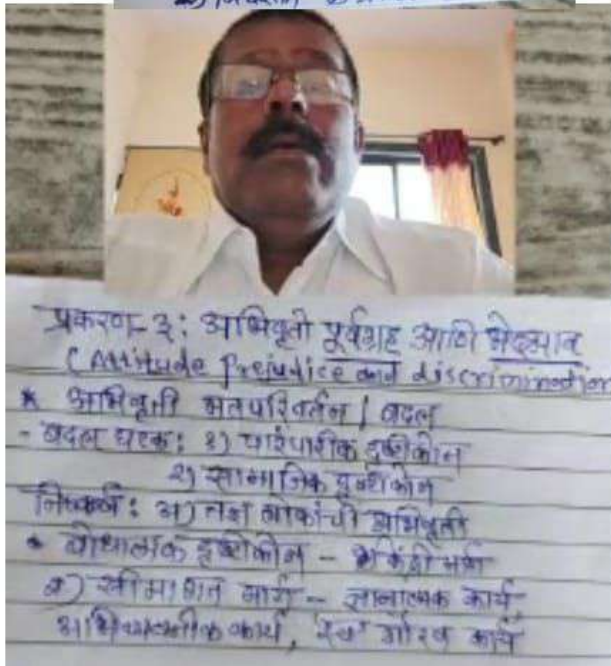 प्रकरण-३: अभिवृत्ती पूर्वग्रह आणि भेदभाव
(Attitude Prejudice and discrimination
* अभिवृत्ती मतपरिवर्तन / बदल
- बदल घटक: १) पारंपारीक दृष्टीकोन
२) सामाजिक दृष्टीकोन
निष्कर्ष: अ) तज्ञ लोकांची अभिवृत्ती
* बोधात्मक दृष्टीकोन -
मार्ग - ज्ञानात्मक कार्य,
कार्य, स्व गौरव कार्य